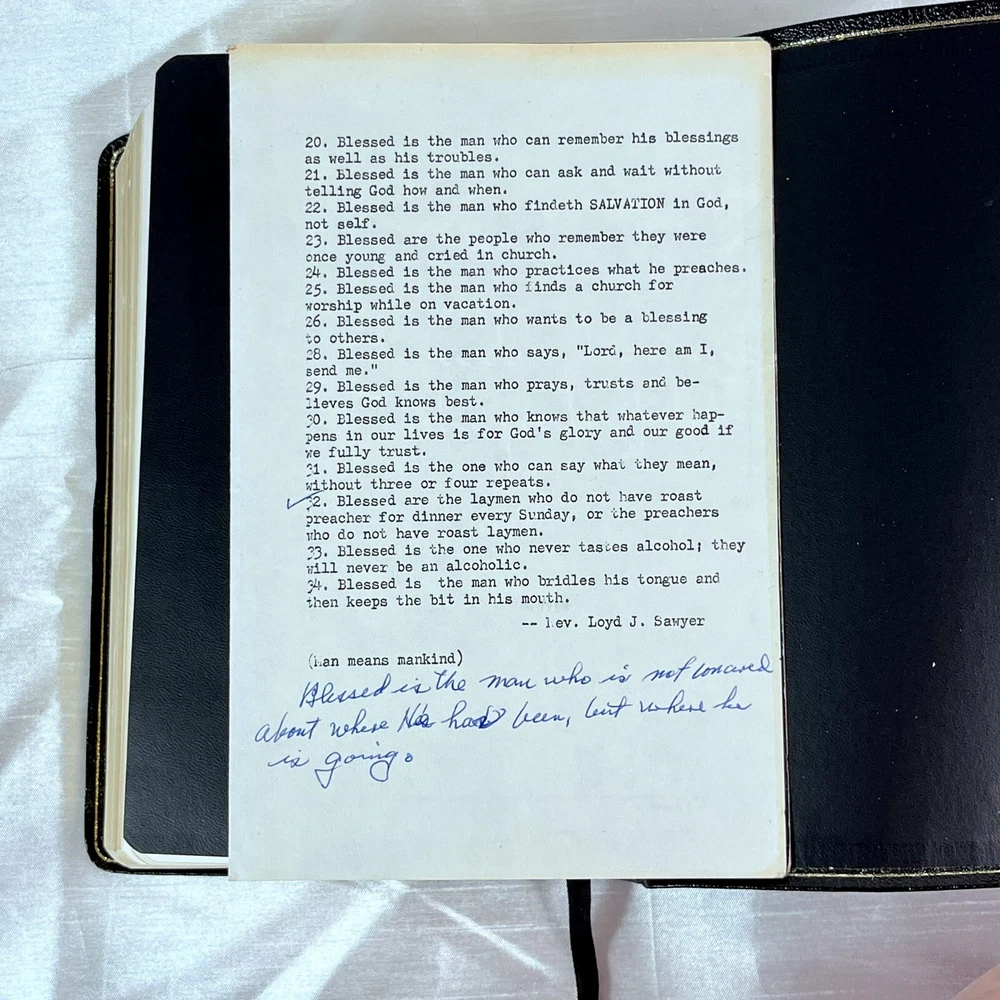 20. Blessed is the man who can remember his blessings
as well as his troubles.
21. Blessed is the man who can ask and wait without
telling God how and when.
22. Blessed is the man who findeth SALVATION in God,
not self.
23. Blessed are the people who remember they were
once young and cried in church.
24. Blessed is the man who practices what he preaches.
25. Blessed is the man who finds a church for
worship while on vacation.
26. Blessed is the man who wants to be a blessing
to others.
28. Blessed is the man who says, "Lord, here am I,
send me."
29. Blessed is the man who prays, trusts and be-
lieves God knows best.
30. Blessed is the man who knows that whatever hap-
pens in our lives is for God's glory and our good if
we fully trust.
31. Blessed is the one who can say what they mean,
without three or four repeats.
32. Blessed are the laymen who do not have roast
preacher for dinner every Sunday, or the preachers
who do not have roast laymen.
33. Blessed is the one who never tastes alcohol; they
will never be an alcoholic.
34. Blessed is the man who bridles his tongue and
then keeps the bit in his mouth.
-- Rev. Loyd J. Sawyer
(Man means mankind)
Blessed is the man who is not
about where He has been, but where he
is going.